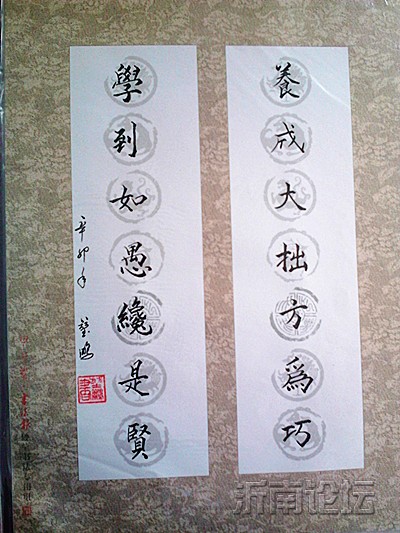 養成大拙方爲巧
學到如愚纔是賢
辛卯年
沂南论坛